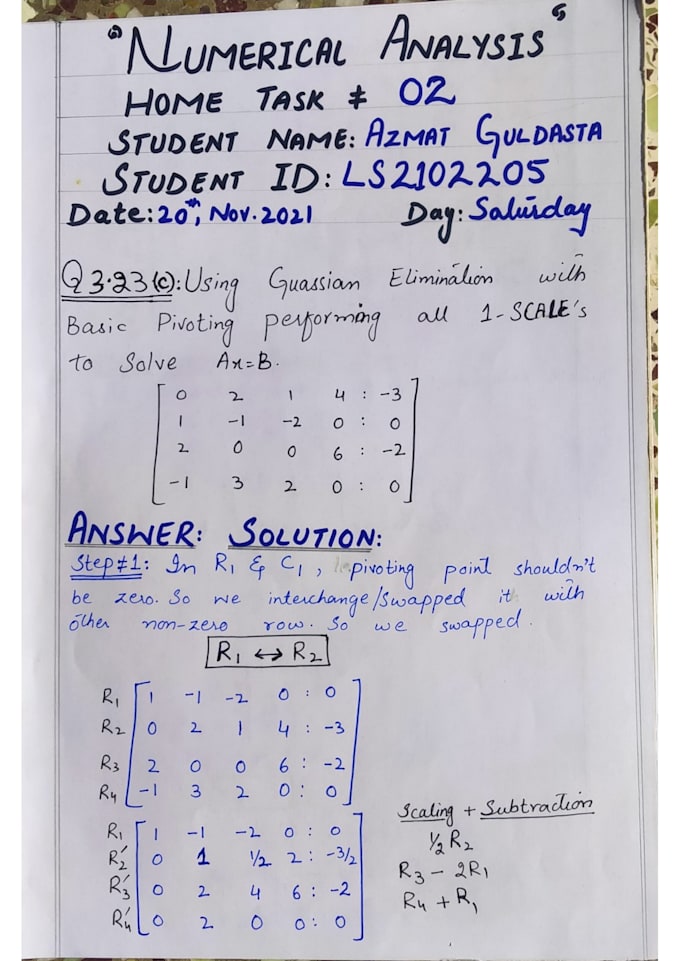 "NUMERICAL ANALYSIS"
HOME TASK # 02
STUDENT NAME: AZMAT GULDASTA
STUDENT ID: LS2102205
Date: 20th, Nov. 2021 Day: Saturday
Q 3.23 (c): Using Guassian Elimination with
Basic Pivoting performing all 1-SCALE's
to Solve Ax=B.
0 2 1 4 : -3
1 -1 -2 0 : 0
2 0 0 6 : -2
-1 3 2 0 : 0
ANSWER: SOLUTION:
Step#1: In R1 & C1, pivoting point shouldn't
be zero. So we interchange/swapped it with
other non-zero row. So we swapped.
R1 ↔ R2
R1 1 -1 -2 0 : 0
R2 0 2 1 4 : -3
R3 2 0 0 6 : -2
R4 -1 3 2 0 : 0
R1 1 -1 -2 0 : 0
R2' 0 1 1/2 2 : -3/2
R3' 0 2 4 6 : -2
R4' 0 2 0 0 : 0
Scaling + Subtraction
1/2 R2
R3 - 2R1
R4 + R1